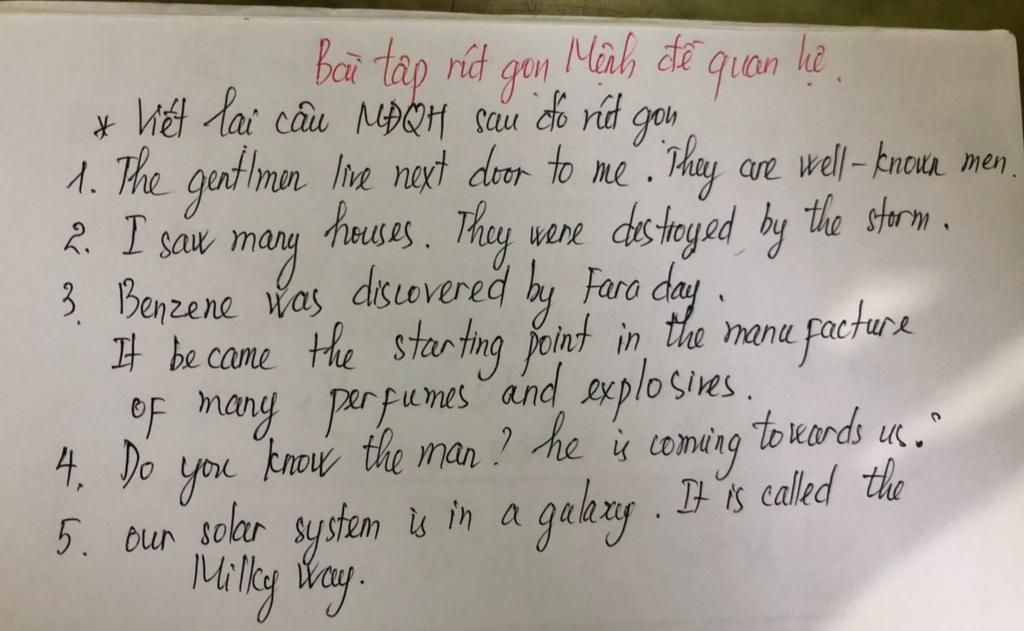 Bài tập rút gọn Mệnh đề quan hệ.
* Viết lại câu MĐQH sau đó rút gọn
1. The gentlmen live next door to me. They are well-known men.
2. I saw many houses. They were destroyed by the storm.
3. Benzene was discovered by Fara day.
It be came the starting point in the manu facture
of many perfumes and explosives.
4. Do you know the man? he is coming towards us.
5. our solar system is in a galaxy. It is called the
Milky Way.